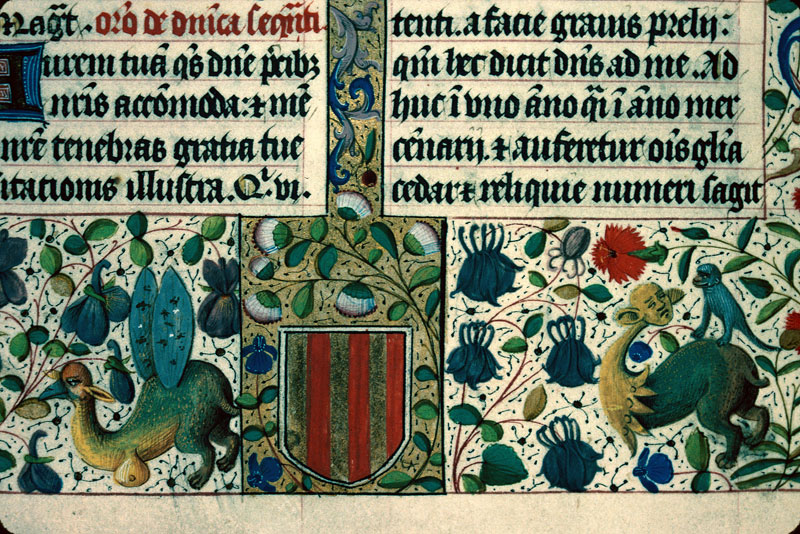 Magr̃t. orõ de dñica seqũti.
Aurem tuã q̃s dñe p̃cibȝ
nr̃is accõmoda: ⁊ mẽ
nr̃e tenebras gratia tue
itationis illustra. Q̃. vi.
tenti. a facie grauis prelij:
qm̃ hec dicit dñs ad me. Ad
huc ĩ vno ãno q̃si ĩ ãno mer
cẽnarij. ⁊ auferetur oĩs glia
cedar ⁊ reliquie numeri sagit